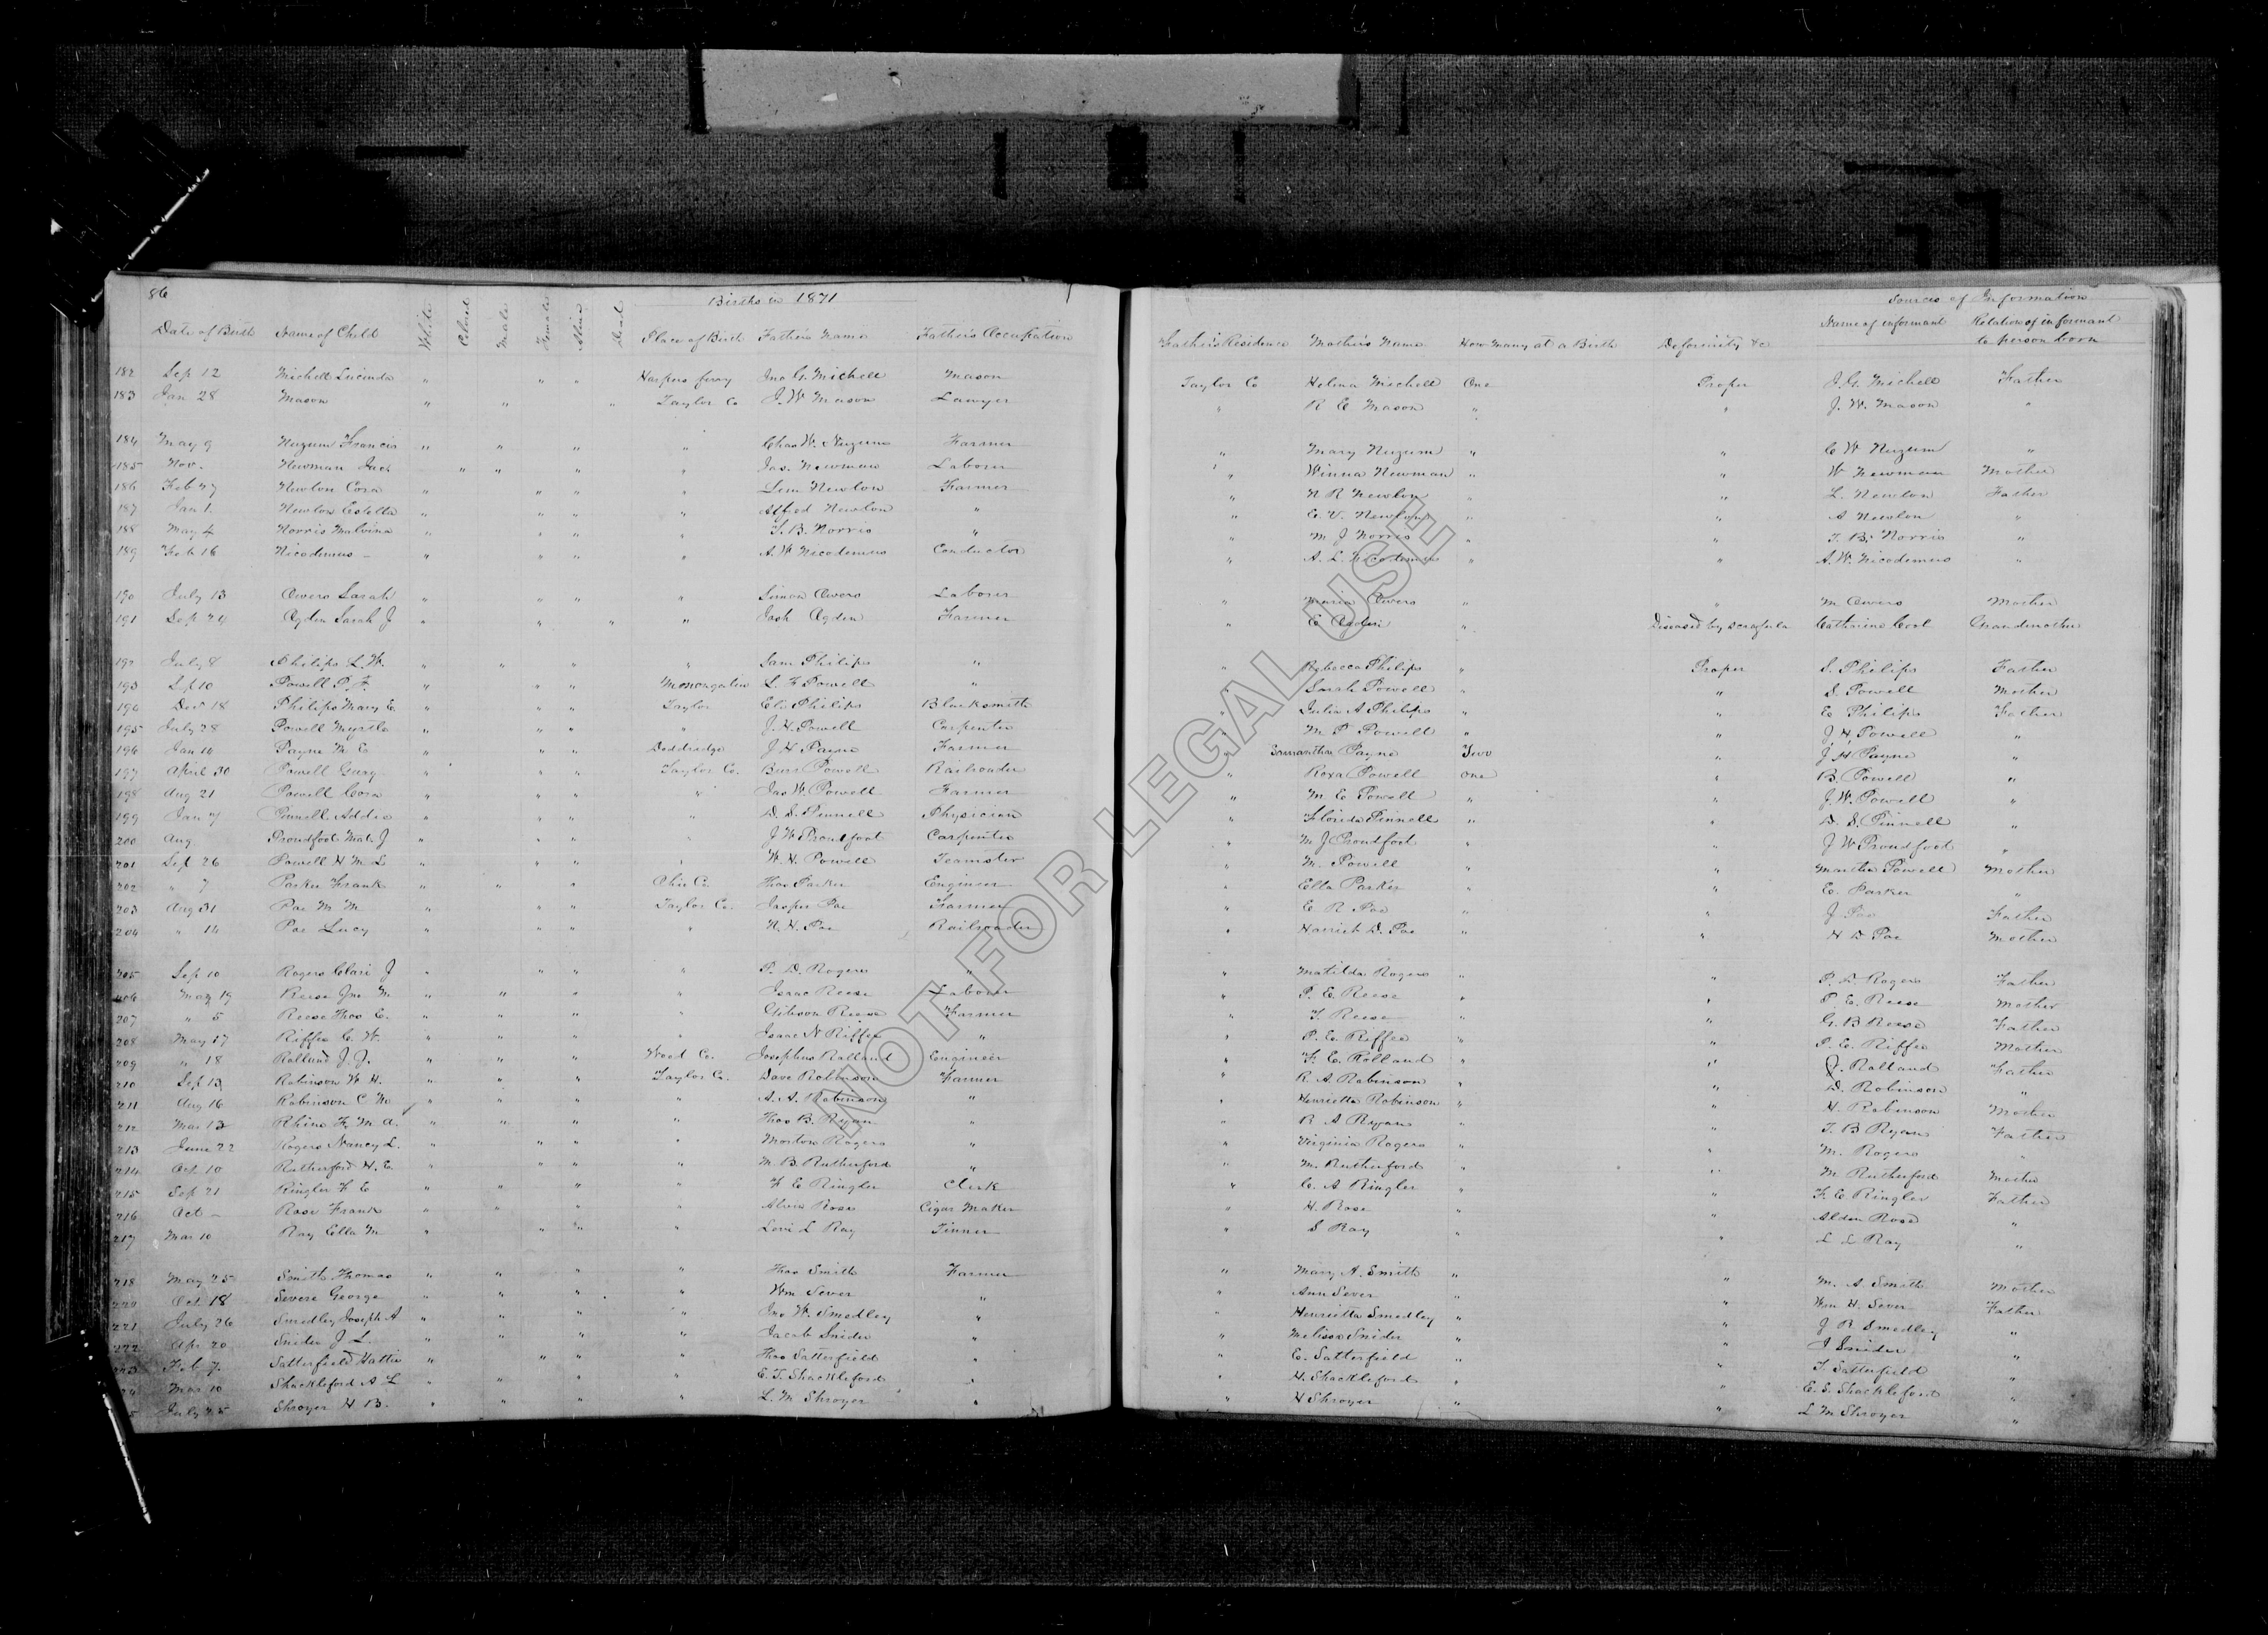 86
Births in 1871
Sources of Information
Date of Birth Name of Child White Colored Male Female Alive Dead Place of Birth Father's Name Father's Occupation Father's Residence Mother's Name How Many at a Birth Deformity &c Name of informant Relation of informant to person born
182 Sep 12 Michell Lucinda " " " Harpers ferry Jno G. Michell Mason Taylor Co Helena Michell One Proper J. G. Michell Father
183 Jan 28 Mason " " " Taylor Co J. W Mason Lawyer " R E Mason " " J. W. Mason "
184 May 9 Nuzum Francis " " " " Chas W. Nuzum Farmer " Mary Nuzum " " C W Nuzum "
185 Nov. Newman Jack " " " " Jas. Newman Laborer " Winna Newman " " W Newman Mother
186 Feb 27 Newlon Cora " " " " Lem Newlon Farmer " N R Newlon " " L. Newlon Father
187 Jan 1. Newlon Estella " " " " Alfred Newlon " " E. V. Newlon " " A Newlon "
188 May 4 Norris Malvina " " " " T. B. Norris " " M J Norris " " T. B. Norris "
189 Feb 16 Nicodemus - " " " " A. W Nicodemus Conductor " A. L. Nicodemus " " A. W. Nicodemus "
190 July 13 Owens Sarah " " " " Simon Owens Laborer " Maria Owens " " M Owens Mother
191 Sep 24 Ogden Sarah J " " " " Josh Ogden Farmer " E Ogden " Diseased by scrofula Catharine Cool Grandmother
192 July 8 Philips L. W. " " " " Sam Philips " " Rebecca Philips " Proper S. Philips Father
193 Sep 10 Powell P. F. " " " Monongalia L. F Powell " " Sarah Powell " " S. Powell Mother
194 Dec 18 Philips Mary E. " " " Taylor Eli Philips Blacksmith " Julia A Philips " " E Philips Father
195 July 28 Powell Myrtle " " " " J. H. Powell Carpenter " M P Powell " " J. H. Powell "
196 Jan 10 Payne M E " " " Doddridge J. H Payne Farmer " Samantha Payne Two " J H Payne "
197 April 30 Powell " " " Taylor Co. Burr Powell Railroader " Roxa Powell one " B. Powell "
198 Aug 21 Powell Cora " " " " Jas W. Powell Farmer " M E Powell " " J. W. Powell "
199 Jan 7 Pinnell Addie " " " " D. S. Pinnell Physician " Florida Pinnell " " D. S. Pinnell "
200 Aug Proudfoot J " " " " J W Proudfoot Carpenter " M J Proudfoot " " J W Proudfoot "
201 Sep 26 Powell H M L " " " " W. H. Powell Teamster " M. Powell " " Martha Powell Mother
202 " 7 Parker Frank " " " Ohio Co. Thos Parker Engineer " Ella Parker " " E. Parker "
203 Aug 31 Poe M M " " " Taylor Co. Jasper Poe Farmer " E R Poe " " J Poe Father
204 " 14 Poe Lucy " " " " N. H. Poe Railroader " Harriet D. Poe " " H D Poe Mother
205 Sep 10 Rogers Clari J " " " " P. D. Rogers " " Matilda Rogers " " P. D. Rogers Father
206 May 19 Reese Jno M " " " " Isaac Reese Laborer " P. E. Reese " " P. E. Reese Mother
207 " 5 Reese Thos E. " " " " Gibson Reese Farmer " T. Reese " " G. B Reese Father
208 May 17 Riffee C. W. " " " " Isaac N Riffee " " P. E. Riffee " " P. E. Riffee Mother
209 " 18 Rolland J. J. " " " Wood Co. Josephus Rolland Engineer " F. E. Rolland " " J. Rolland Father
210 Sep 13 Robinson W H. " " " Taylor Co. Dave Robinson Farmer " R. A. Robinson " " D. Robinson "
211 Aug 16 Robinson C W " " " " A. A. Robinson " " Henrietta Robinson " " H. Robinson Mother
212 Mar 12 F. M. A. " " " " Thos B. Ryan " " R A Ryan " " T. B Ryan Father
213 June 22 Rogers Nancy L. " " " " Morton Rogers " " Virginia Rogers " " M. Rogers "
214 Oct 10 Rutherford H. E. " " " " M. B. Rutherford " " M. Rutherford " " M Rutherford Mother
215 Sep 21 Ringler F E " " " " F E Ringler Clerk " C. A Ringler " " F. E. Ringler Father
216 Oct - Rose Frank " " " " Rose Cigar Maker " H. Rose " " Alden Rose "
217 Mar 10 Ray Ella M " " " " Levi L Ray Tinner " S Ray " " L L Ray "
218 May 25 Smith Thomas " " " " Thos Smith Farmer " Mary A. Smith " " M. A Smith Mother
220 Oct 18 Severe George " " " " Wm Sever " " Ann Sever " " Wm H. Sever Father
221 July 26 Smedley Joseph A " " " " Jno W. Smedley " " Henrietta Smedley " " J R Smedley "
222 Apr 20 Snider J L. " " " " Jacob Snider " " Melissa Snider " " J Snider "
223 Feb 7. Satterfield Hattie " " " " Thos Satterfield " " E. Satterfield " " T. Satterfield "
24 Mar 10 Shackleford A L " " " " E. T. Shackleford " " H. Shackleford " " E. S. Shackleford "
5 July 25 Shroyer H B. " " " " L. M Shroyer " " H Shroyer " " L M Shroyer "
NOT FOR LEGAL USE